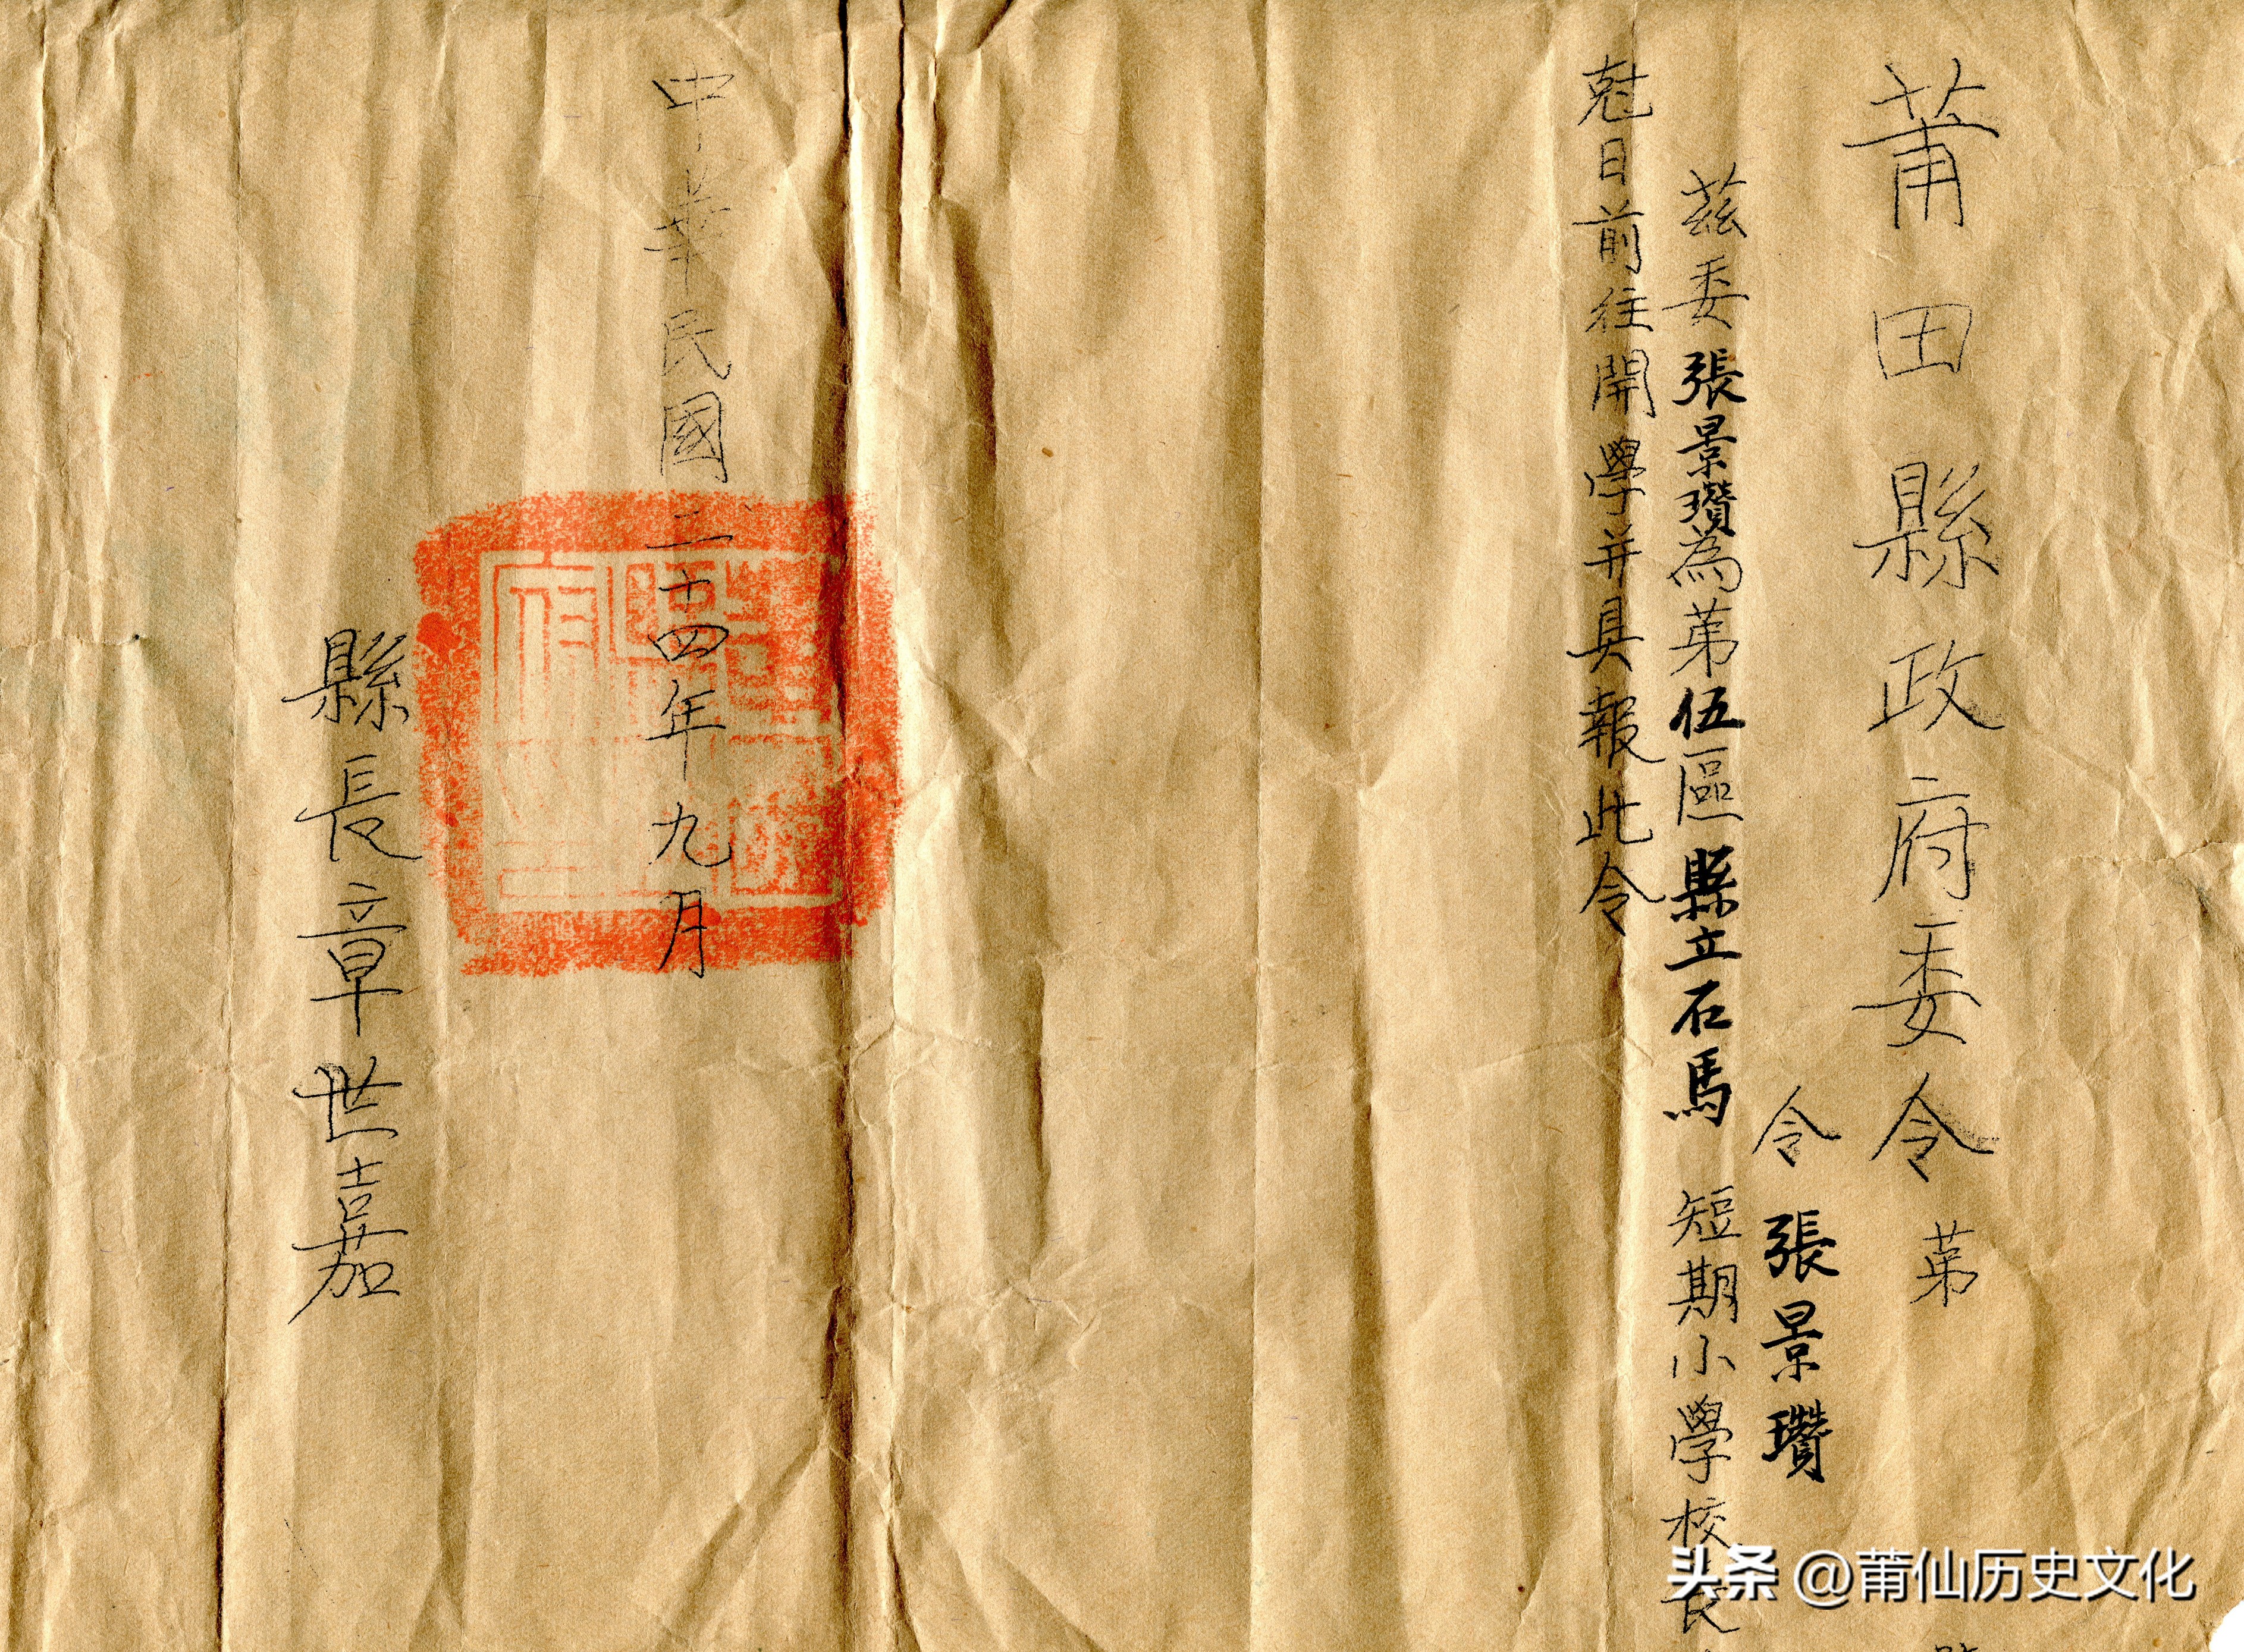 莆田縣政府委令第
令張景瓚
茲委張景瓚為第伍區縣立石馬短期小學校長
尅日前往開學并具報此令
中華民國二十四年九月
縣長章世嘉
头条 @莆仙历史文化